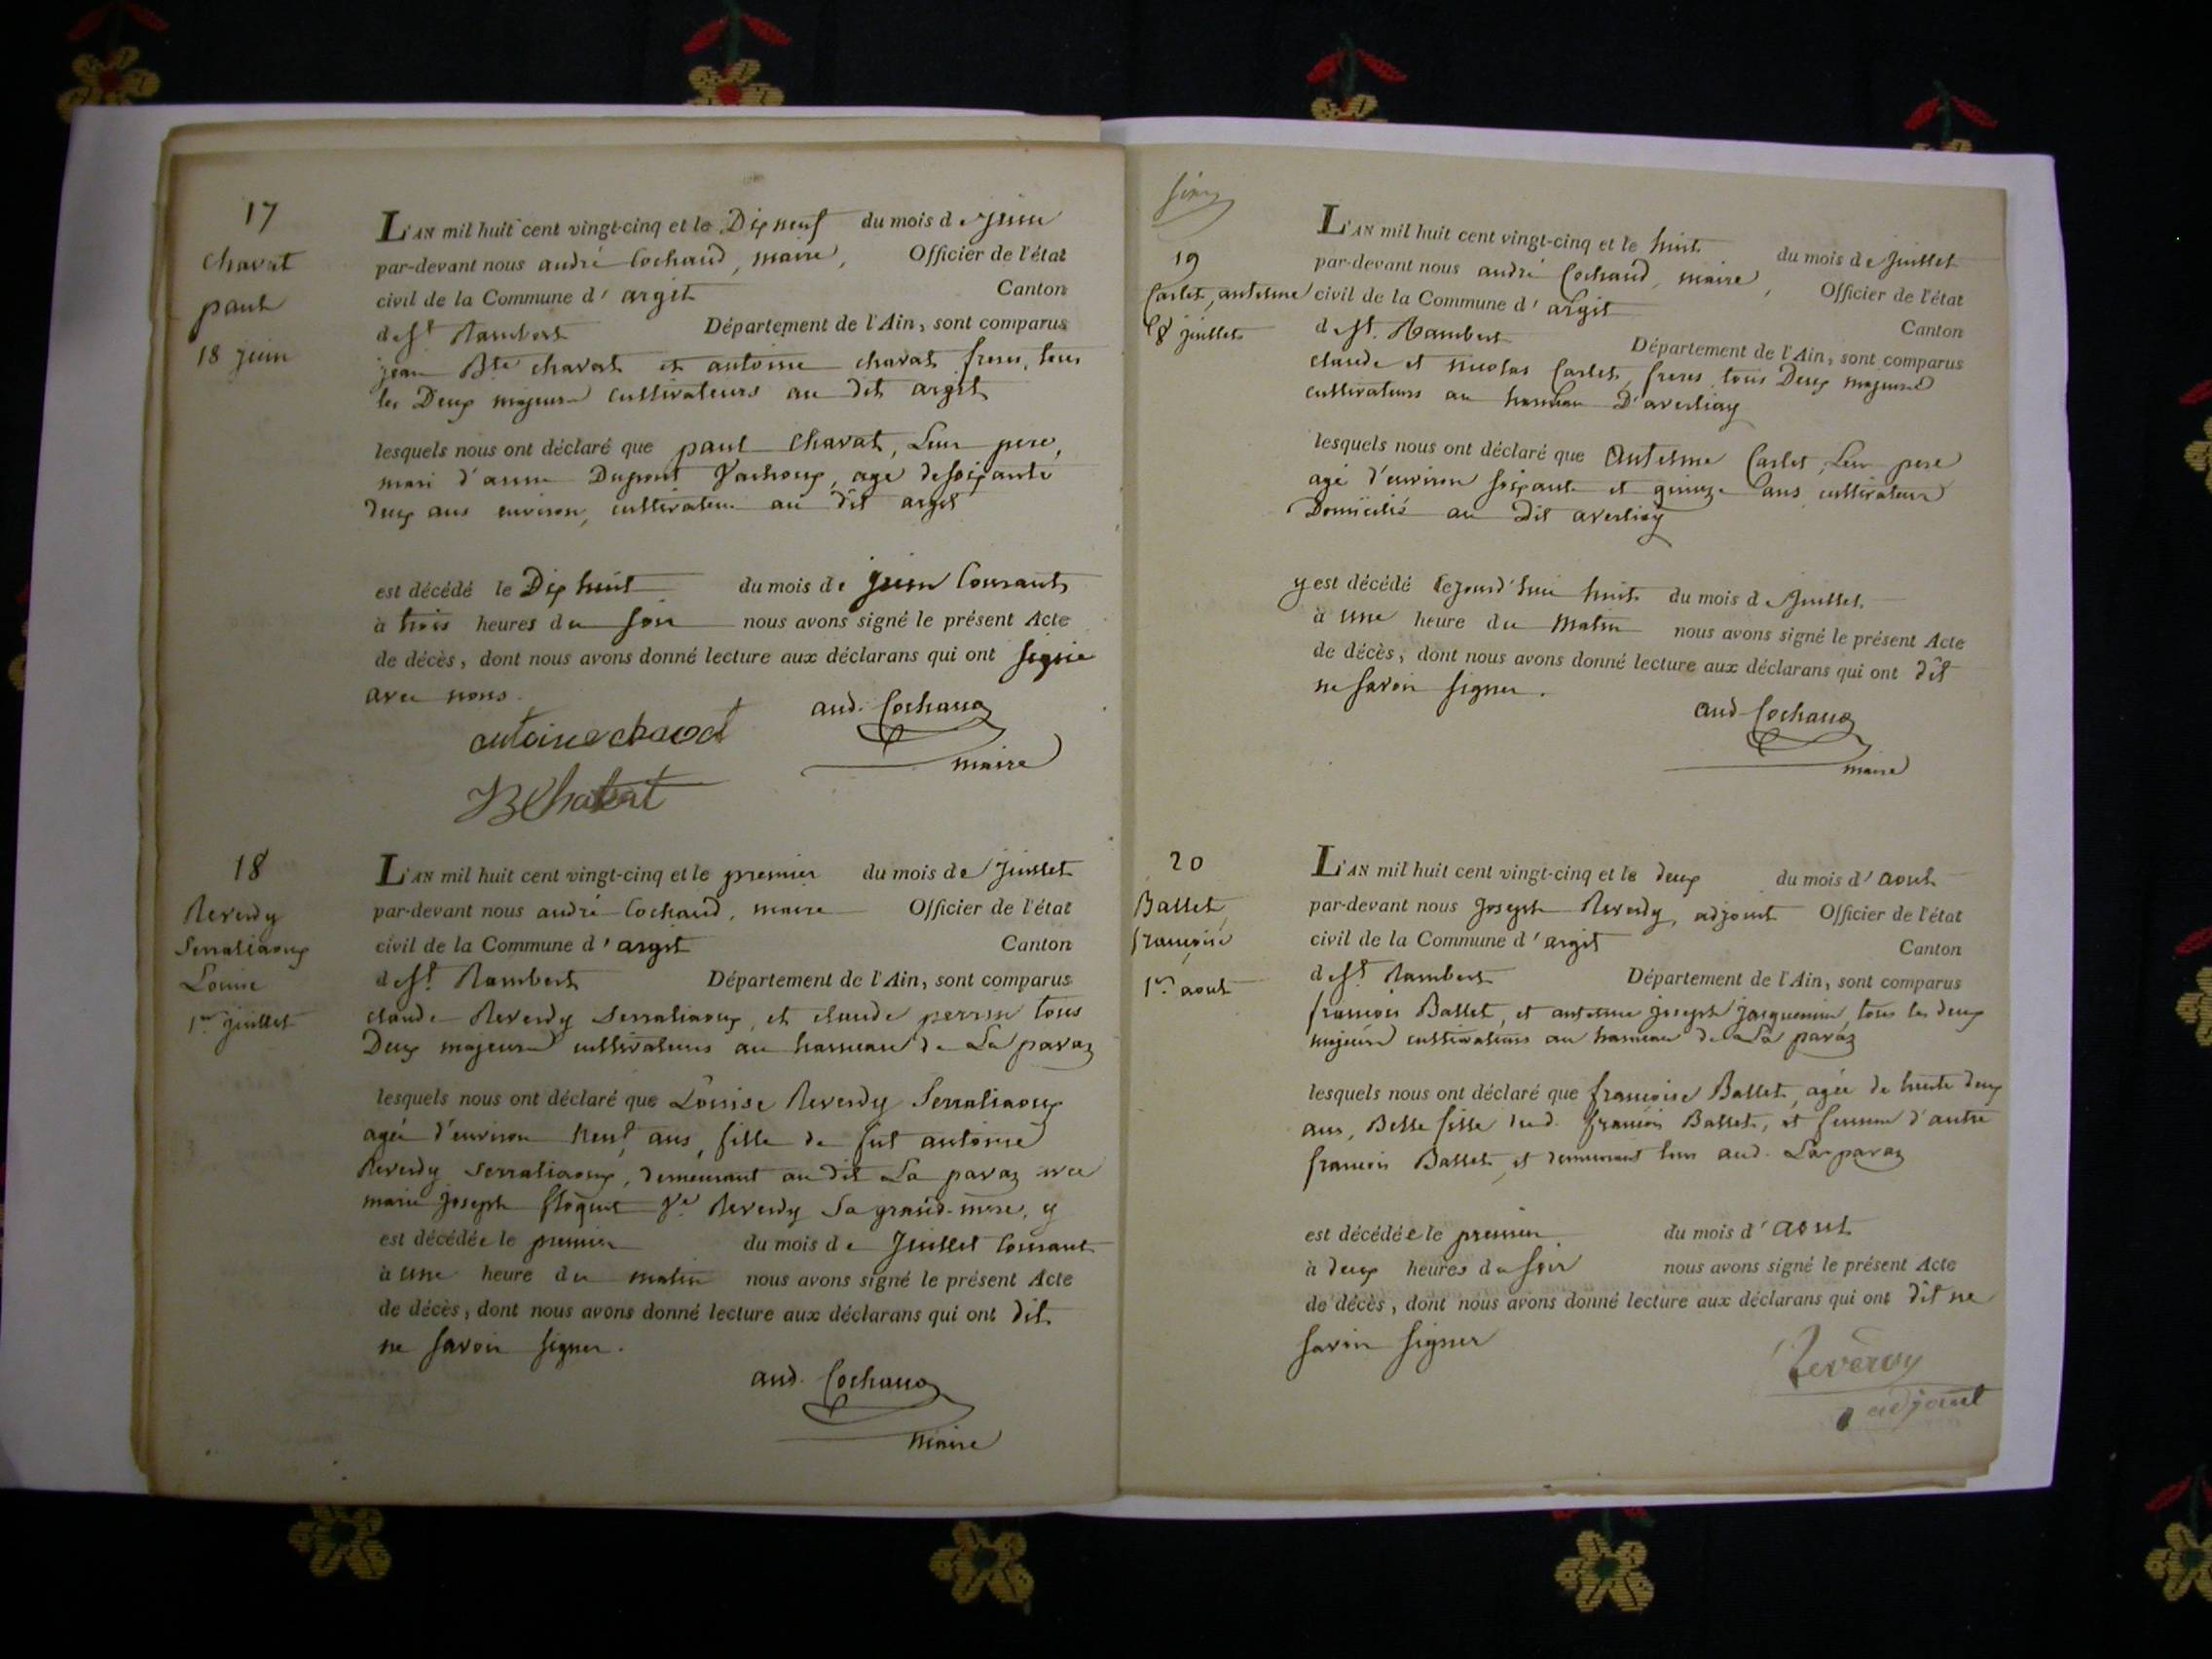 17
Chavat
paul
18 juin
L'AN mil huit cent vingt-cinq et le Dix neuf du mois de Juin
par-devant nous andré Cochaud, maire, Officier de l'état
civil de la Commune d'argit Canton
de St Rambert Département de l'Ain, sont comparus
jean Bte chavat et antoine chavat freres, tous
les Deux majeurs cultivateurs au dit argit
lesquels nous ont déclaré que paul Chavat, Leur pere,
mari d'anne Dupont Vachoux, agé de soixante
deux ans environ, cultivateur au dit argit
est décédé le Dix huit du mois de juin Courant
à trois heures du soir nous avons signé le présent Acte
de décès, dont nous avons donné lecture aux déclarans qui ont signé
avec nous.
antoine chavat
and. Cochaud
maire
JBChavat
18
Reverdy
Serraliaoux
Louise
1er juillet
L'AN mil huit cent vingt-cinq et le premier du mois de Juillet
par-devant nous andré Cochaud, maire Officier de l'état
civil de la Commune d'argit Canton
de St Rambert Département de l'Ain, sont comparus
claude Reverdy Serraliaoux, et claude perrin tous
Deux majeurs cultivateurs au hameau de La pavaz
lesquels nous ont déclaré que Louise Reverdy Serraliaoux
agée d'environ neuf ans, fille de fut antoine
Reverdy Serraliaoux, demeurant au dit La pavaz avec
marie joseph ve Reverdy Sa grand-mere, y
est décédée le premier du mois de Juillet Courant
à une heure du matin nous avons signé le présent Acte
de décès, dont nous avons donné lecture aux déclarans qui ont dit
ne savoir signer.
and. Cochaud
maire
19
Carlet, antesme
8 juillet
L'AN mil huit cent vingt-cinq et le huit du mois de Juillet
par-devant nous andré Cochaud, maire, Officier de l'état
civil de la Commune d'argit Canton
de St. Rambert Département de l'Ain, sont comparus
claude et nicolas Carlet, freres, tous Deux majeurs
cultivateurs au hameau D'averliaz
lesquels nous ont déclaré que Antesme Carlet, Leur pere
agé d'environ soixante et quinze ans cultivateur
Domicilié au dit averliaz
y est décédé cejourd'hui huit du mois de Juillet
à une heure du matin nous avons signé le présent Acte
de décès, dont nous avons donné lecture aux déclarans qui ont dit
ne savoir signer.
and Cochaud
maire
20
Ballet,
françoise
1er aout
L'AN mil huit cent vingt-cinq et le deux du mois d'aout
par-devant nous Joseph Reverdy, adjoint Officier de l'état
civil de la Commune d'argit Canton
de St Rambert Département de l'Ain, sont comparus
françois Ballet, et antesme joseph jacquemin, tous les deux
majeurs cultivateurs au hameau de La pavaz
lesquels nous ont déclaré que françoise Ballet, agée de trente deux
ans, Belle fille dud. françois Ballet, et femme d'autre
françois Ballet, et demeurant tous aud. La pavaz
est décédée le premier du mois d'aout
à deux heures du soir nous avons signé le présent Acte
de décès, dont nous avons donné lecture aux déclarans qui ont dit ne
savoir signer
Reverdy
adjoint